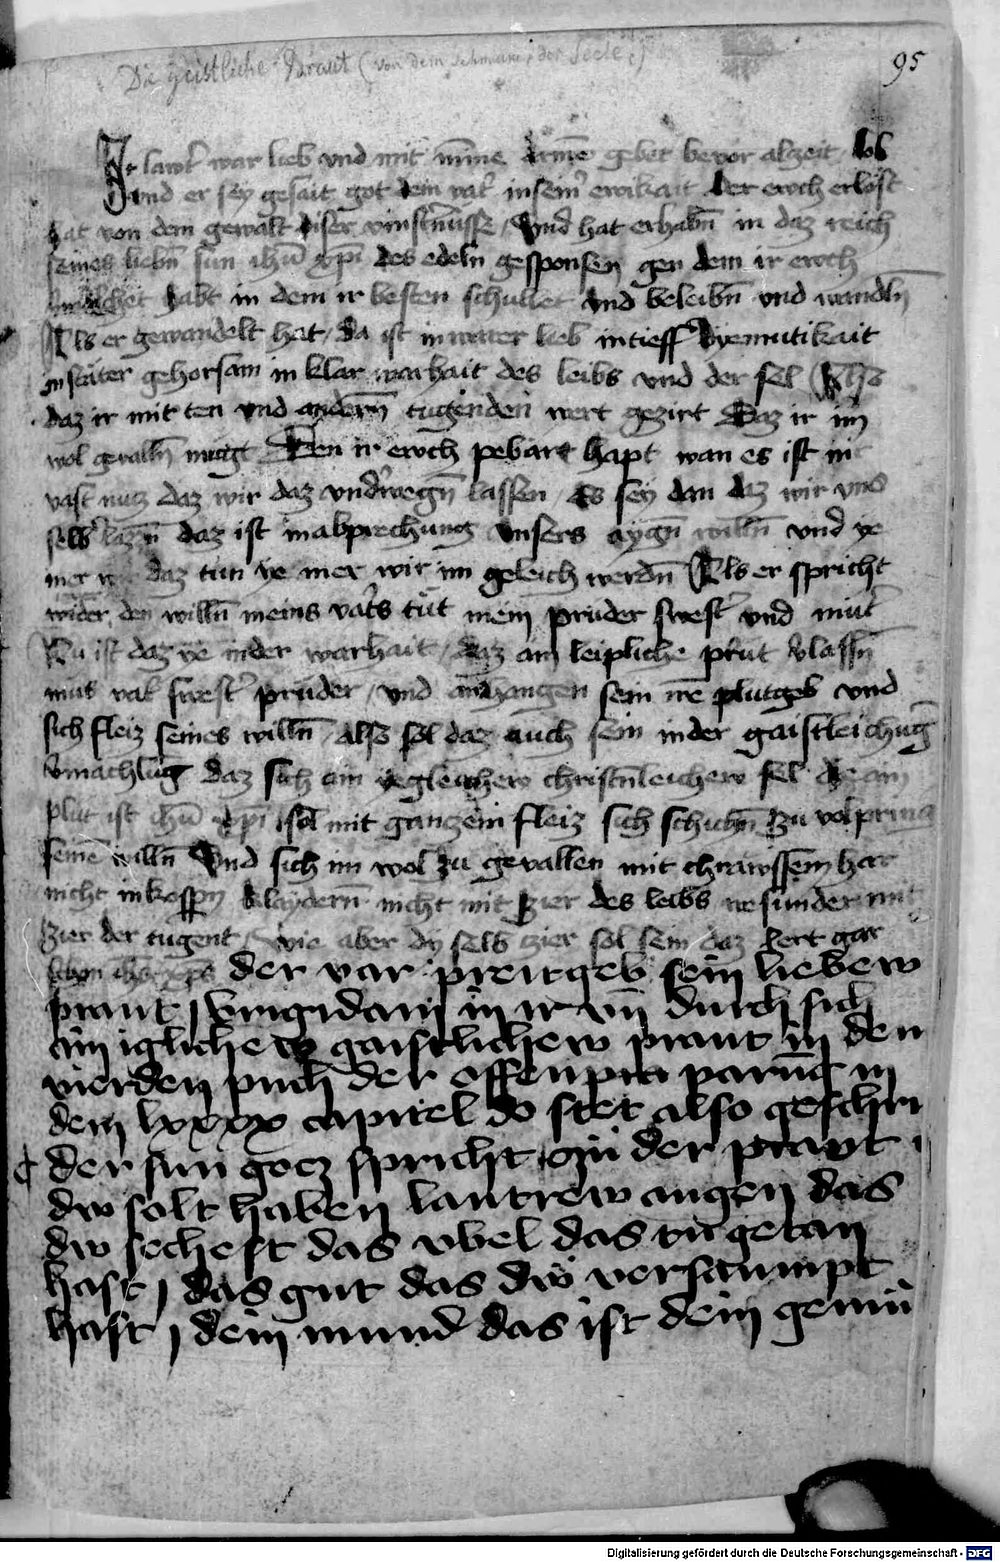 Die geistliche Braut (von dem Schmuck der Seele)
95
Ir lawt' war lieb vnd mit mīne arme gebet bevor alzeit lob
vnd er sey gesait got dem vat' in sein' ewikait der ewch erlöst
hat von dem gewalt diser vinst'nusse / Vnd hat erhabn̄ in daz reich
seines liebn̄ sun ihū xp̄i des edeln gesponsen gen dem ir ewch
habt in dem ir besten schullet vnd beleibn̄ vnd wandln̄
Als er gewandelt hat / da ist in warer lieb in tieff dyemutikait
in stäter gehorsam in klar warhait des leibs vnd der sel Also
daz ir mit ten vnd andern̄ tugenden wert gezirt Daz ir im
wol gevalln̄ mugt Den ir ewch pebart hapt wan es ist nit
vast nutz daz wir daz vnd'wegn̄ lassen / Es sey dan daz wir vns
selb' lazn̄ daz ist in abprechung vnsers aygn̄ willn̄ vnd ye
mer wir daz tun ye mer wir im geleich werdn̄ Als er spricht
wider den willn̄ meins vat's tüt mein pruder swest' vnd mut'
Nu ist daz ye in der warhait / daz ain leipliche prŭt v'lassn̄
mus vat' swest' pruder / vnd anhangen sein irē plutgeb vnd
sich fleiz seines willn̄ / also sol daz auch sein in der gaistleichn̄g
v'mächlūg daz sich ain yegleichew christn̄leichew sel die ain
prut ist ihū xp̄i / sol mit ganzem fleiz sich schubn̄ zu volpring
seinē willn̄ Vnd sich im wol zu gevallen mit chrawssem har
nicht in kospn̄ klaydern̄ nicht mit zier des leibs ne sunder mit
zier der tugent / wie aber dy selb zier sol sein daz lert gar
schon ihs xp̄s der var preitgeb sein liebew
praut / brigidam in ir vn̄ durch sich
ain iglichew gaistlichew praut in den
vierden puch der offenpra parūg in
dem lxxxx capitel do stet also geschri
der sun gocz spricht / czu der praut /
dw solt haben lautrew augen das
dw sechest das vbel das tu getan
hast / das gut das dw versaumpt
hast / dein mund das ist dein gemü
Digitalisierung gefördert durch die Deutsche Forschungsgemeinschaft - DFG